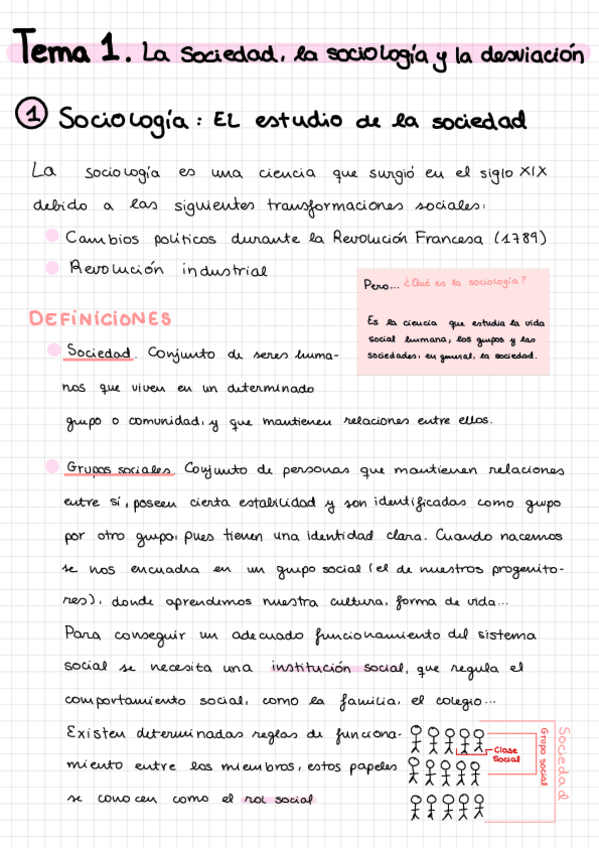 Tema 1. La Sociedad, la sociología y la desviación
1 Sociología: El estudio de la sociedad
La sociología es una ciencia que surgió en el siglo XIX
debido a las siguientes transformaciones sociales:
Cambios políticos durante la Revolución Francesa (1789)
Revolución industrial
Pero... ¿Qué es la sociología?
Es la ciencia que estudia la vida
social humana, los grupos y las
sociedades, en general, la sociedad.
DEFINICIONES
Sociedad. Conjunto de seres huma-
nos que viven en un determinado
grupo o comunidad, y que mantienen relaciones entre ellos.
Grupos sociales. Conjunto de personas que mantienen relaciones
entre sí, poseen cierta estabilidad y son identificadas como grupo
por otro grupo, pues tienen una identidad clara. Cuando nacemos
se nos encuadra en un grupo social (el de nuestros progenito-
res), donde aprendemos nuestra cultura, forma de vida...
Para conseguir un adecuado funcionamiento del sistema
social se necesita una institución social, que regula el
comportamiento social, como la familia, el colegio...
Existen determinadas reglas de funciona-
miento entre los miembros, estos papeles
se conocen como el rol social
Clase
Social
Grupo social
Sociedad